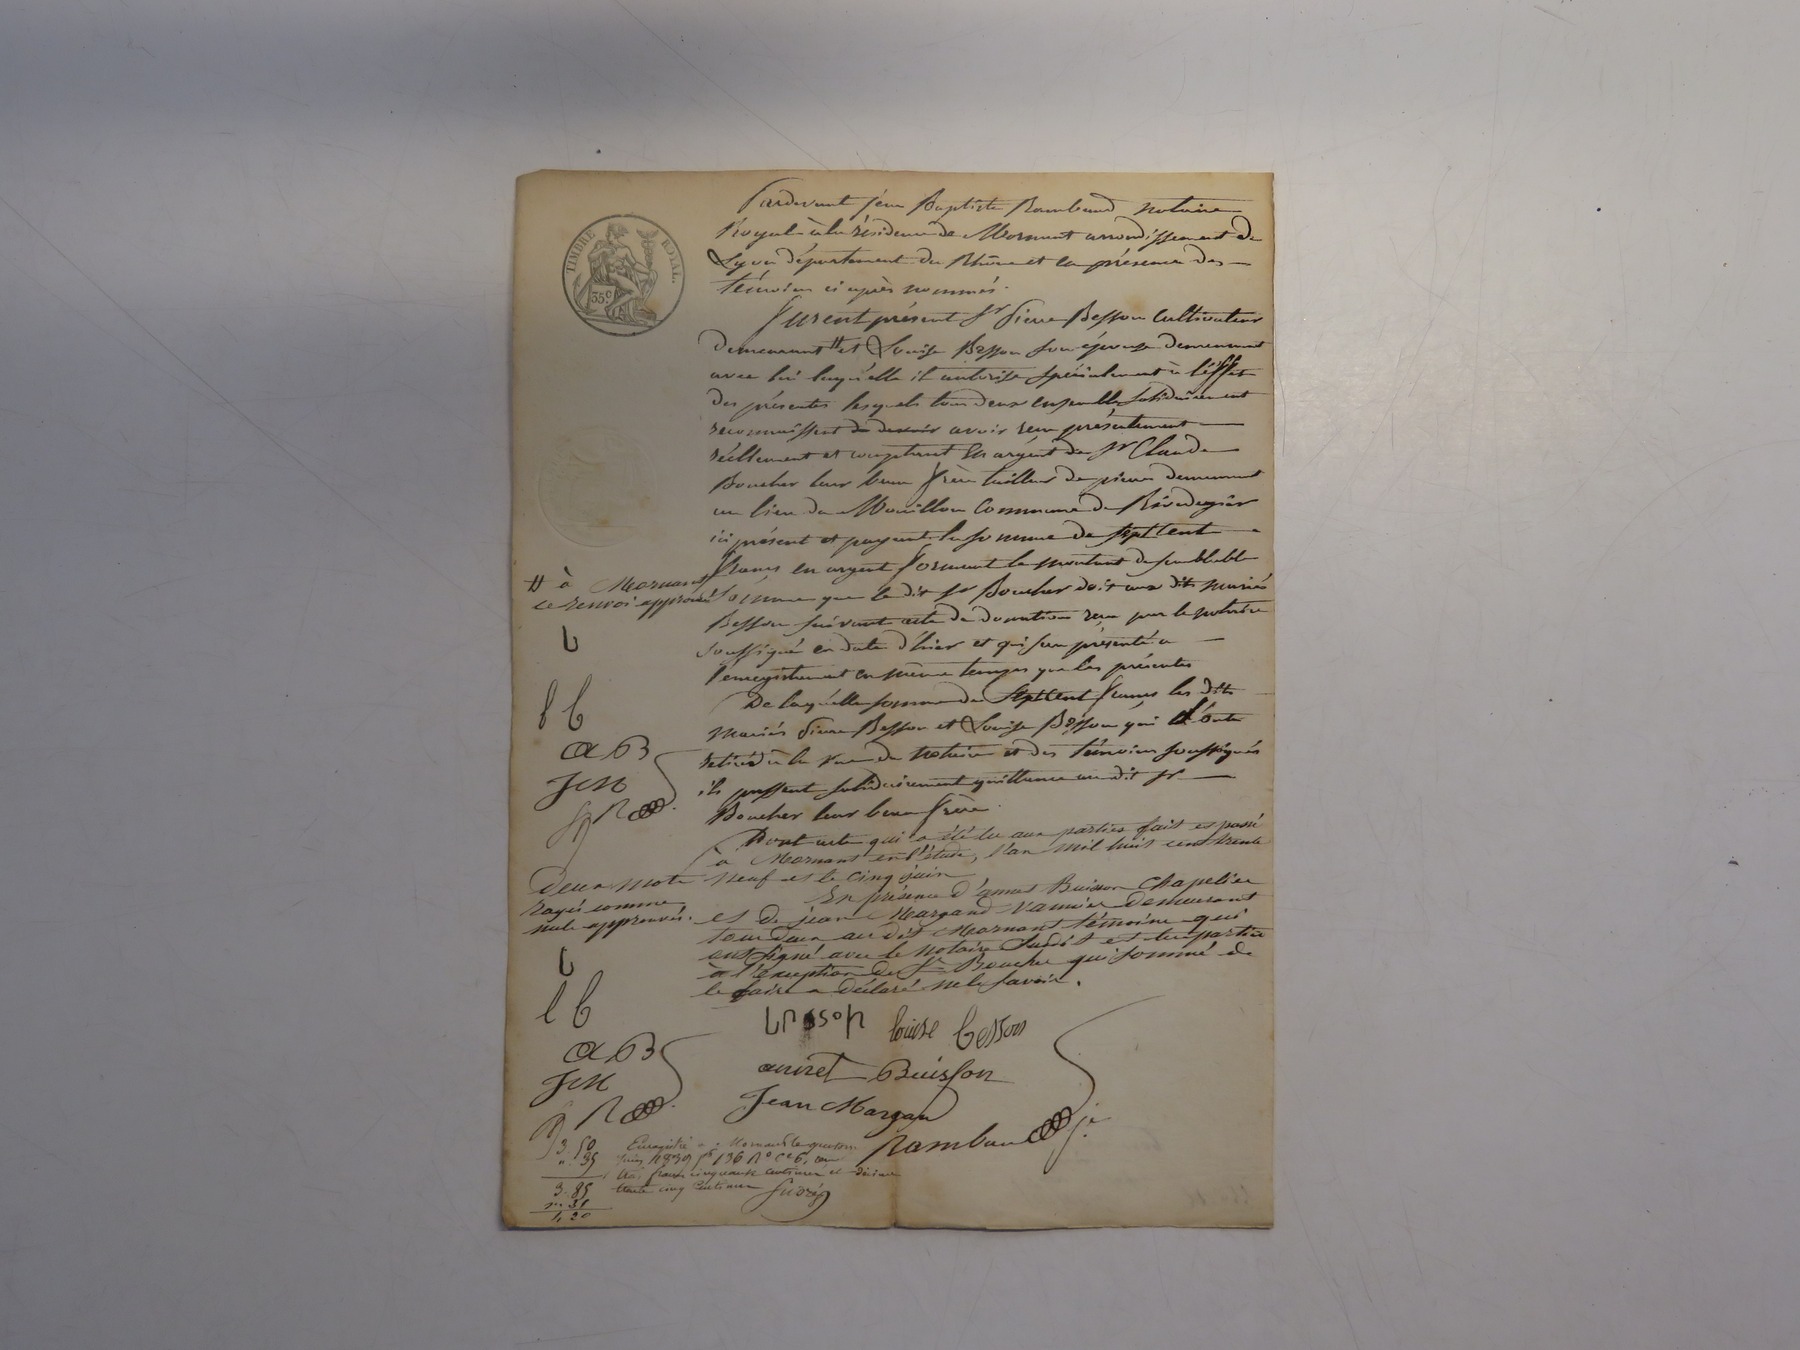 TIMBRE ROYAL.
35 c.
Pardevant jean Baptiste Rambaud notaire
Royal à la résidence de Mornant arrondissement de
Lyon département du Rhône et en présence des
témoins ci après nommés.
Furent présent Sr Pierre Besson Cultivateur
demeurant # et Louise Besson son épouse demeurant
avec lui laquelle il autorise spécialement à l'effet
des présentes lesquels tous deux ensemble solidairement
reconnaissent de devoir avoir reçu présentement
réellement et comptant en argent de Sr Claude
Boucher leur beau frère tailleur de pierre demeurant
au lieu de Mouillon Commune de Rivedegier
ici présent et payant la somme de sept cent
francs en argent formant le montant de semblable
# à Mornant
ce renvoi approuvé
somme que le dit Sr Boucher doit aux dits mariés
Besson suivant acte de donation reçu par le notaire
soussigné en date d'hier et qui sera présenté a
l'enregistrement en même temps que les présentes
b
De laquelle somme de sept cent francs les dits
l b
mariés Pierre Besson et Louise Besson qui l'ont
a B
retiré à la vue du notaire et des témoins soussignés
J M
ils passent solidairement quittance au dit Sr
R
Boucher leur beau frère.
Dont acte qui a été lu aux parties fait et passé
à Mornant en l'étude, l'an mil huit cent trente
neuf et le cinq juin
Deux mots
rayés comme
nuls approuvés.
En présence d'amet Buisson Chapelier
et de jean Margand vannier demeurant
tous deux au dit Mornant témoins qui
ont signé avec le notaire susdit et les parties
à l'exception de Sr Boucher qui sommé de
le faire a déclaré ne le savoir.
b
l b
a B
J M
R
besson louise besson
amet Buisson
Jean Margan
Rambaud
3 50
" 35
3. 85
35
4, 20
Enregistré à Mornant le
juin 1839 f° 136 R° Ce 6, reçu
trois francs cinquante centimes et décime
trente cinq Centimes